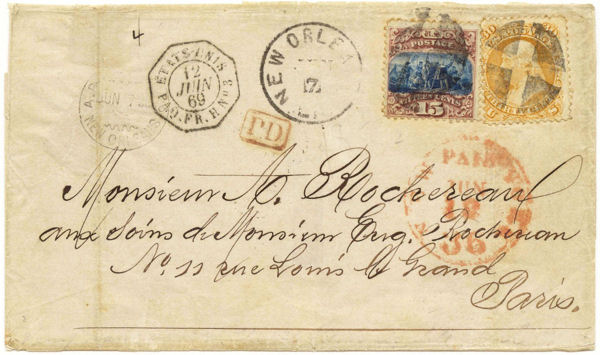 4
ETATS-UNIS 3
12
JUIN
69
PAQ. FR. H. No 3
NEW ORLEA
U.S. POSTAGE
FIFTEEN CENTS
15
30
30
JUN 7
NEW ORLEANS
PD
PAID
JUN
12
36
Monsieur A. Rochereau
aux Soins de Monsieur Eug. Rochereau
No. 11 rue Louis le Grand
Paris.